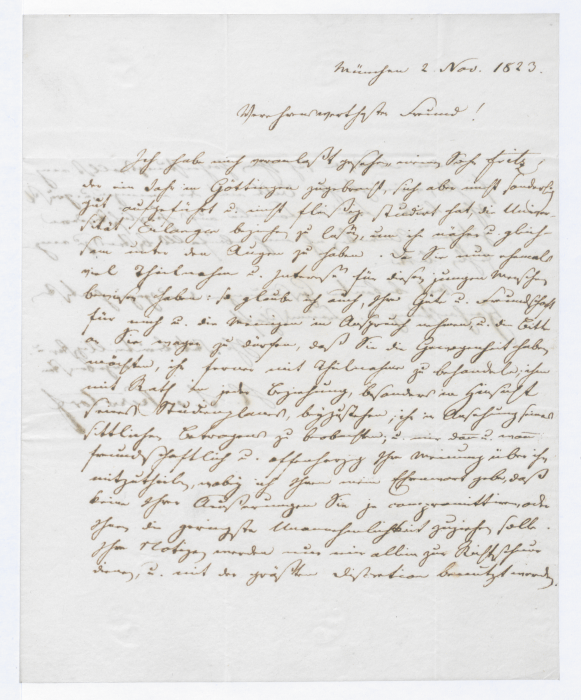 München 2. Nov. 1823.
Verehrungswerthester Freund!
Ich habe mich veranlaßt gesehen, meinen Sohn Fritz,
der ein Jahr in Göttingen zugebracht, sich aber nicht sonderlich
gut aufgeführt u. nicht fleißig studirt hat, die Univer-
sität Erlangen beziehen zu lassen, um ihn näher u. gleich-
sam unter den Augen zu haben. Da Sie nun ehemals
viel Theilnahme u. Interesse für diesen jungen Menschen
bewiesen haben: so glaube ich auch, Ihre Güte u. Freundschaft
für mich u. die Meinigen in Anspruch nehmen, u. die Bitte
an Sie wagen zu dürfen, daß Sie die Gewogenheit haben
möchten, ihn ferner mit Theilnahme zu behandeln, ihm
mit Rath in jeder Beziehung, besonders in Hinsicht
seines Studienplanes, beyzustehen, ihn in Ansehung seines
sittlichen Betragens zu beobachten, u. mir dann u. wann
freundschaftlich u. offenherzig Ihre Meinung über ihn
mitzutheilen, wobey ich Ihnen mein Ehrenwort gebe, daß
keine Ihrer Äußerungen Sie je compromittiren, oder
Ihnen die geringste Unannehmlichkeit zuziehen solle.
Ihre Notizen werden nur mir allein zur Richtschnur
dienen, u. mit der größten Discretion benutzt werden.